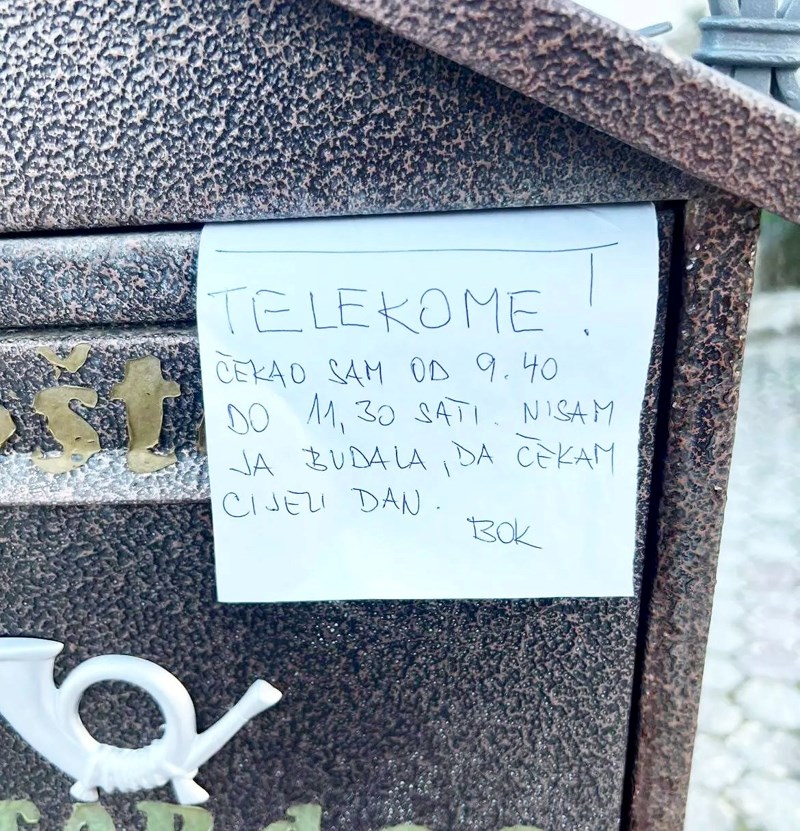 TELEKOME!
ČEKAO SAM OD 9.40
DO 11,30 SATI. NISAM
JA BUDALA, DA ČEKAM
CIJELI DAN.
BOK